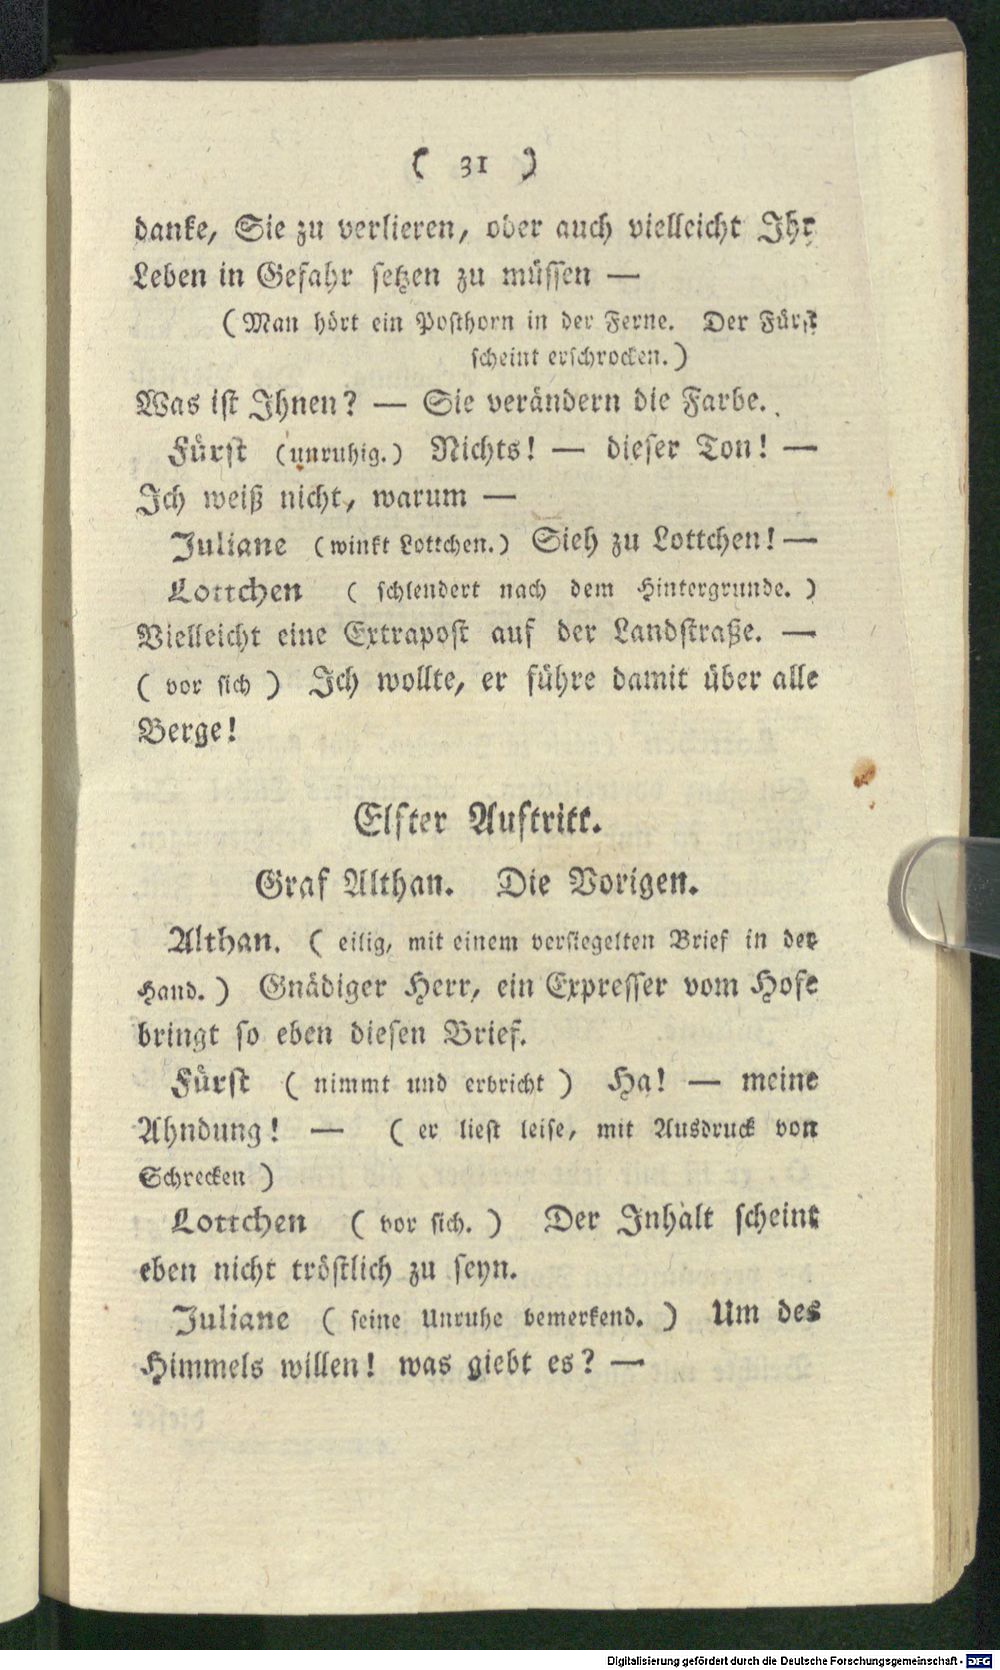 ( 31 )
danke, Sie zu verlieren, oder auch vielleicht Ihr
Leben in Gefahr setzen zu müssen —
(Man hört ein Posthorn in der Ferne. Der Fürst
scheint erschrocken.)
Was ist Ihnen? — Sie verändern die Farbe.
Fürst (unruhig.) Nichts! — dieser Ton! —
Ich weiß nicht, warum —
Juliane (winkt Lottchen.) Sieh zu Lottchen! —
Lottchen ( schlendert nach dem Hintergrunde. )
Vielleicht eine Extrapost auf der Landstraße. —
( vor sich ) Ich wollte, er führe damit über alle
Berge!
Elfter Auftritt.
Graf Althan. Die Vorigen.
Althan. ( eilig, mit einem versiegelten Brief in der
Hand. ) Gnädiger Herr, ein Expresser vom Hofe
bringt so eben diesen Brief.
Fürst ( nimmt und erbricht ) Ha! — meine
Ahndung! — ( er liest leise, mit Ausdruck von
Schrecken )
Lottchen ( vor sich. ) Der Inhalt scheint
eben nicht tröstlich zu seyn.
Juliane ( seine Unruhe bemerkend. ) Um des
Himmels willen! was giebt es? —
Digitalisierung gefördert durch die Deutsche Forschungsgemeinschaft - DFG